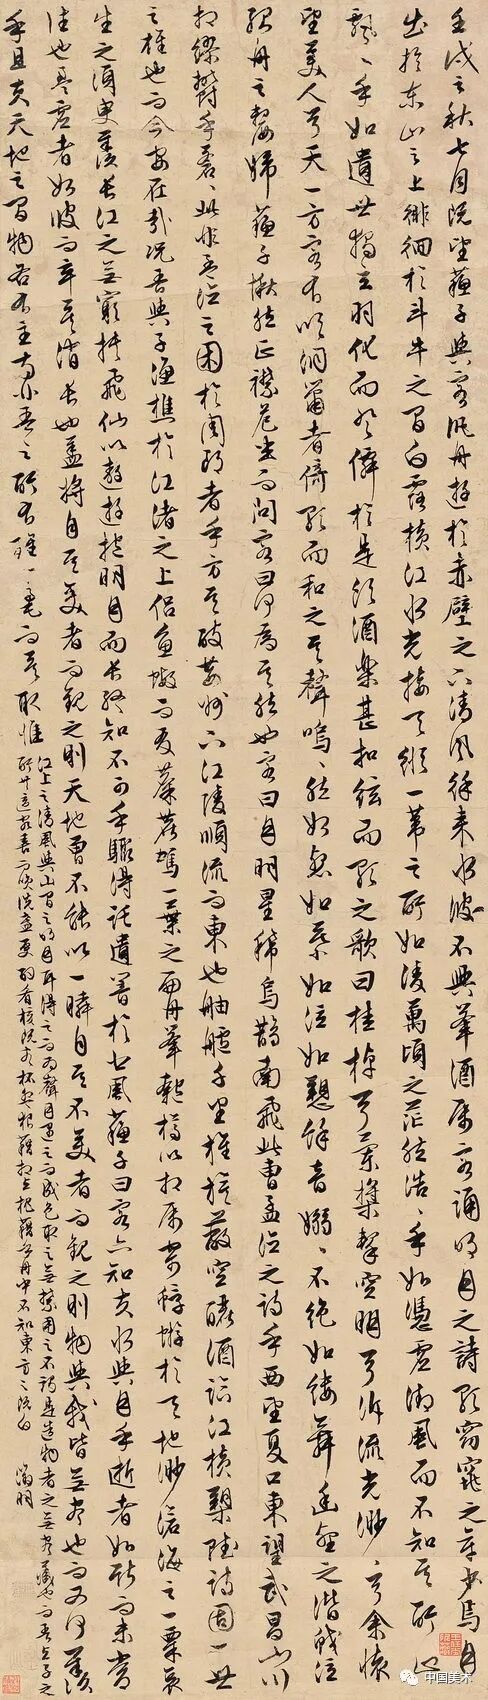 壬戌之秋七月既望蘇子與客汎舟遊於赤壁之下清風徐來水波不興舉酒屬客誦明月之詩歌窈窕之章少焉月
出於東山之上徘徊於斗牛之間白露橫江水光接天縱一葦之所如凌萬頃之茫然浩浩乎如憑虛御風而不知其所止
飄飄乎如遺世獨立羽化而登僊於是飲酒樂甚扣舷而歌之歌曰桂棹兮蘭槳擊空明兮泝流光渺渺兮余懷
望美人兮天一方客有吹洞簫者倚歌而和之其聲嗚嗚然如怨如慕如泣如愬餘音嫋嫋不絕如縷舞幽壑之潛蛟泣
孤舟之嫠婦蘇子愀然正襟危坐而問客曰何為其然也客曰月明星稀烏鵲南飛此曹孟德之詩乎西望夏口東望武昌山川
相繆鬱乎蒼蒼此非孟德之困於周郎者乎方其破荊州下江陵順流而東也舳艫千里旌旗蔽空釃酒臨江橫槊賦詩固一世
之雄也而今安在哉況吾與子漁樵於江渚之上侶魚蝦而友麋鹿駕一葉之扁舟舉匏樽以相屬寄蜉蝣於天地渺滄海之一粟哀
生之須臾羨長江之無窮挾飛仙以遨遊抱明月而長終知不可乎驟得託遺響於悲風蘇子曰客亦知夫水與月乎逝者如斯而未嘗
往也盈虛者如彼而卒莫消長也蓋將自其變者而觀之則天地曾不能以一瞬自其不變者而觀之則物與我皆無盡也而又何羨
乎且夫天地之間物各有主苟非吾之所有雖一毫而莫取惟
江上之清風與山間之明月耳得之而為聲目遇之而成色取之無禁用之不竭是造物者之無盡藏也而吾與子之
所共適客喜而笑洗盞更酌肴核既盡杯盤狼籍相與枕藉乎舟中不知東方之既白 徵明
中国美术